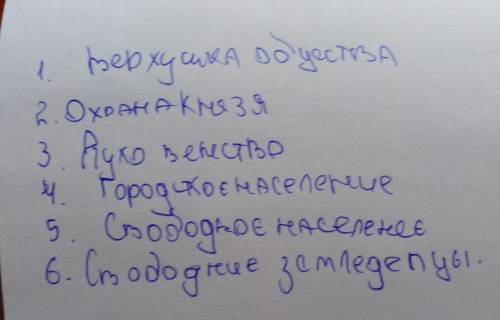 1. Верхушка общества
2. Охрана князя
3. Духовенство
4. Городское население
5. Свободное население
6. Свободние земледельцы.